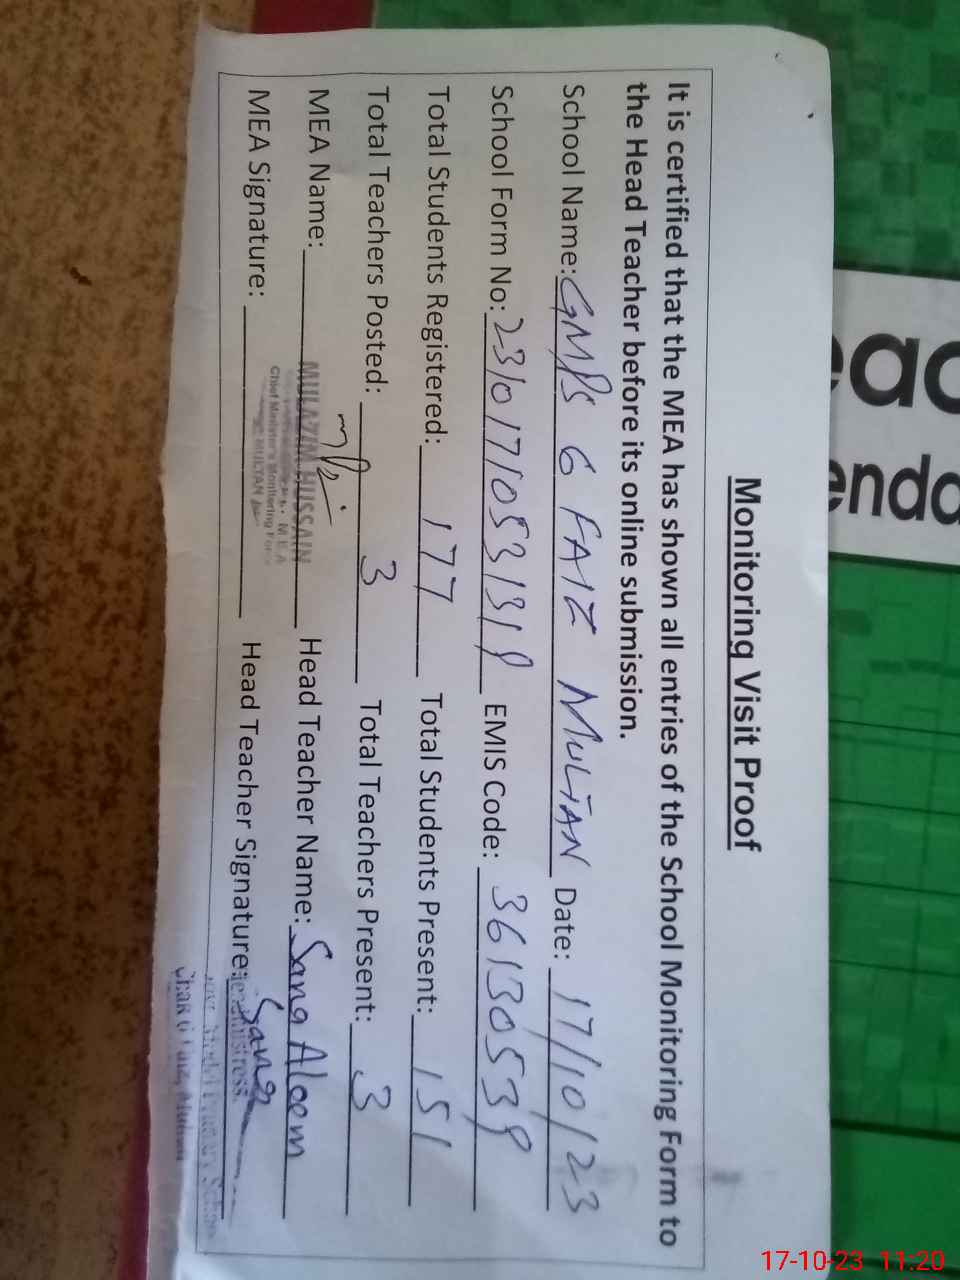 Monitoring Visit Proof
It is certified that the MEA has shown all entries of the School Monitoring Form to
the Head Teacher before its online submission.
School Name: GMPS 6 FAIZ MULTAN Date: 17/10/23
School Form No: 2310171053131 EMIS Code: 3613053
Total Students Registered: 177 Total Students Present: 151
Total Teachers Posted: 3 Total Teachers Present: 3
MEA Name: Head Teacher Name: Sana Aleem
MULAZIM HUSSAIN
M.E.A
Chief Minister's Monitoring Force
MULTAN
MEA Signature: Head Teacher Signature: Sana
Headmistress
Govt. Model Primary School
Chak 6 Faiz, Multan
eac
enda
17-10-23 11:20